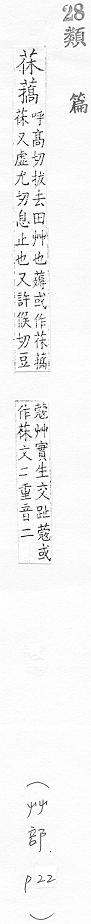 28
類
篇
茠薅
呼高切拔去田艸也薅或作茠薅
茠又虛尤切息止也又許候切豆
蔻艸實生交趾蔻或
作茠文二重音二
(艸部. p22)